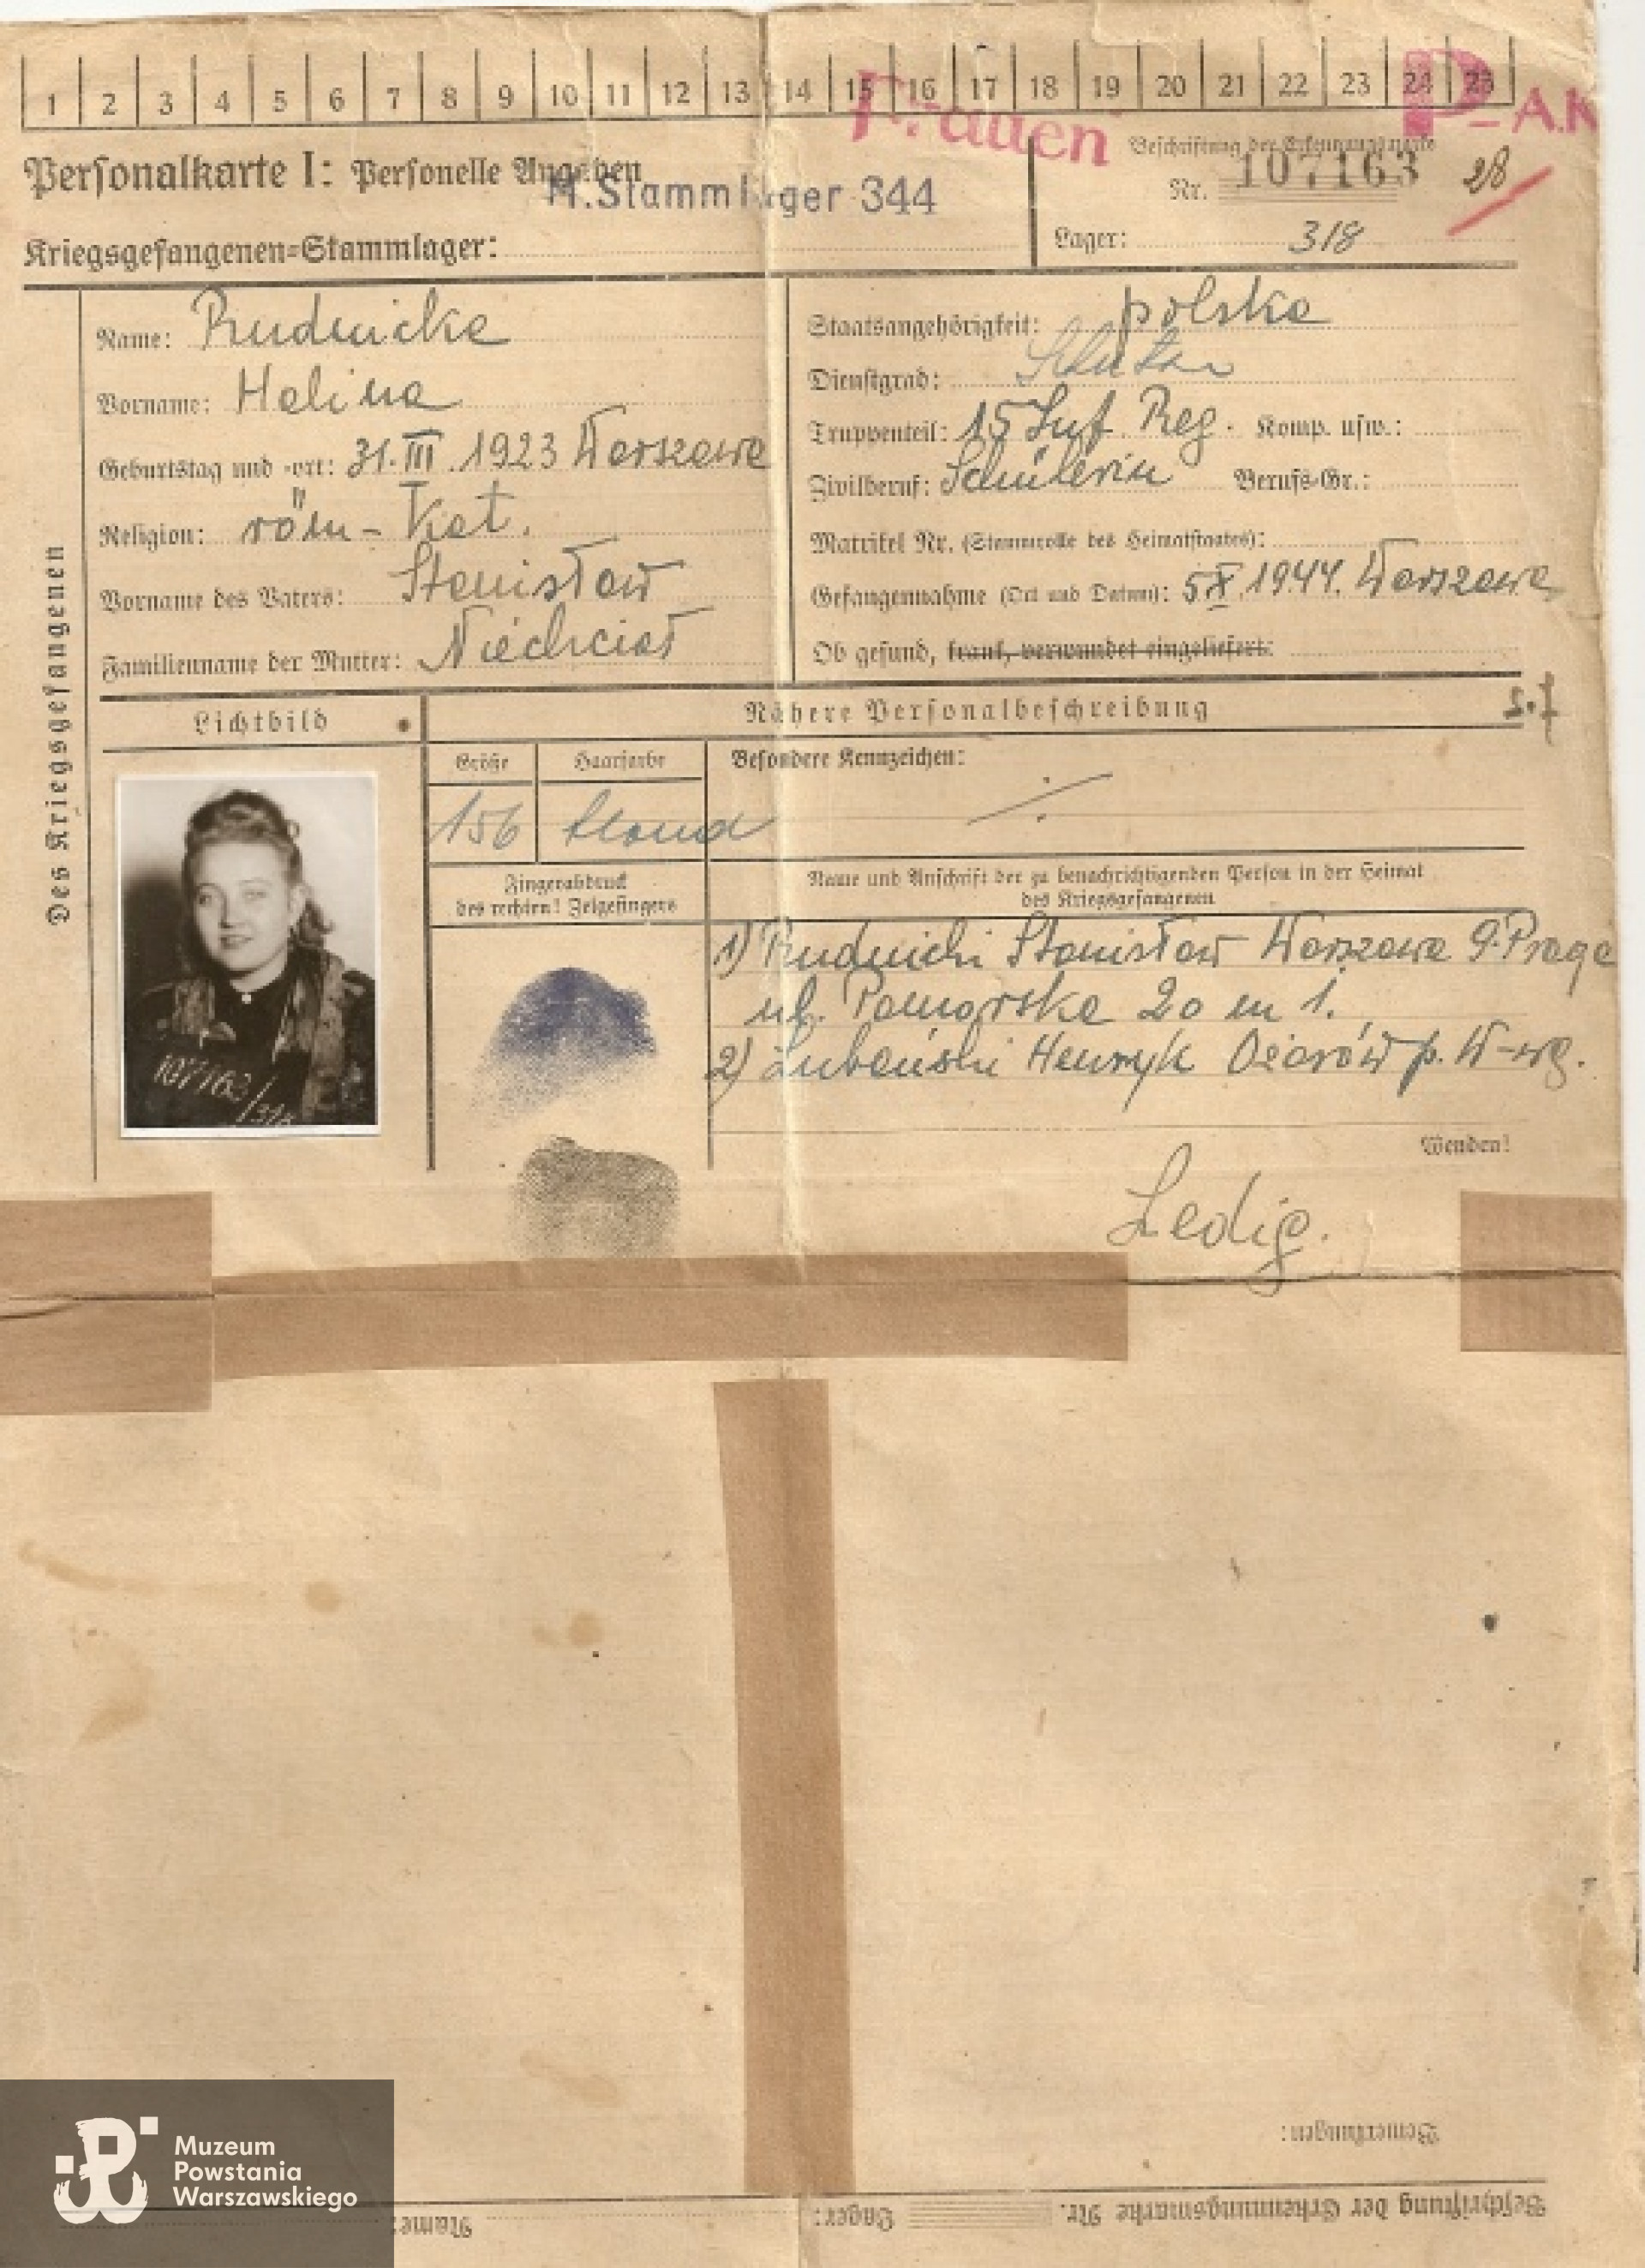 1 2 3 4 5 6 7 8 9 10 11 12 13 14 15 16 17 18 19 20 21 22 23 24 25
Frauen
P-A.K
Personalkarte I: Personelle Angaben
M.Stammlager 344
Beschriftung der Erkennungsmarke
Nr. 107163 28
Kriegsgefangenen=Stammlager:
Lager: 318
Des Kriegsgefangenen
Name: Rudnicka
Vorname: Halina
Geburtstag und -ort: 31.III.1923 Warszawa
Religion: röm-Kat.
Vorname des Vaters: Stanisław
Familienname der Mutter:
Staatsangehörigkeit: polska
Dienstgrad:
Truppenteil: 15 Inf. Reg. Komp. usw.:
Zivilberuf: Schülerin Berufs-Gr.:
Matrikel Nr. (Stammrolle des Heimatstaates):
Gefangennahme (Ort und Datum): 5 X.1944. Warszawa
Ob gesund, krank, verwundet eingeliefert:
Lichtbild
Nähere Personalbeschreibung
Größe
Haarfarbe
Besondere Kennzeichen:
156
blond
Fingerabdruck
des rechten! Zeigefingers
Name und Anschrift der zu benachrichtigenden Person in der Heimat
des Kriegsgefangenen
1) Rudnicki Stanisław Warszawa 9-Praga
ul. Pomorska 20 m 1.
2) Łubeński Henryk Ożarów p. W-wą.
107163/318
Wenden!
Ledig.
Bemerkungen:
Beschriftung der Erkennungsmarke Nr.
Lager:
Name:
Muzeum
Powstania
Warszawskiego